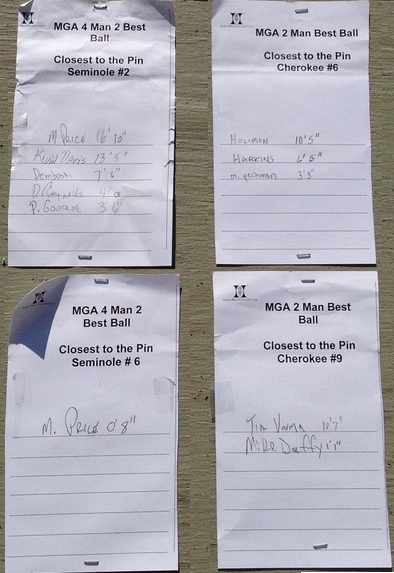 MGA 4 Man 2 Best
Ball
Closest to the Pin
Seminole #2
M PRICE 16'10"
Kevin Davis 13'5"
7'6"
D Reynolds
P. GOODLOE 3'6"
MGA 2 Man Best Ball
Closest to the Pin
Cherokee #6
HOLIMON 10'5"
HARKINS 6'5"
m. pechman 3'3"
MGA 4 Man 2
Best Ball
Closest to the Pin
Seminole # 6
M. PRICE 0'8"
MGA 2 Man Best
Ball
Closest to the Pin
Cherokee #9
Tim 10'7"
Mike Duffy 1'1"